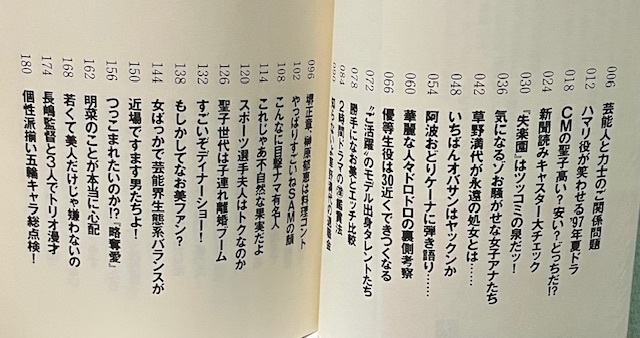 006 芸能人と力士のご関係問題
012 ハマリ役が笑わせる'97年夏ドラ
018 CMの聖子高い?安い?どっちだ!?
024 新聞読みキャスター大チェック
030 『失楽園』はツッコミの泉だッ!
036 気になる〝お騒がせな女子アナたち
042 草野満代が永遠の処女とは……
048 いちばんオバサンはヤックンか
054 阿波おどりケーナに弾き語り……
060 華麗な人々ドロドロの裏側考察
066 優等生役は30近くできつくなる
072 〝ご活躍〟のモデル出身タレントたち
078 勝手になお美とエッチ比較
084 2時間ドラマの㊙鑑賞法
090
096 堺正章、榊原郁恵は料理コント
102 やっぱりすごいねSAMの顔
108 こんなに目撃ナマ有名人
114 これじゃあ不自然な果実だよ
120 スポーツ選手夫人はトクなのか
126 聖子世代は子連れ離婚ブーム
132 すごいぞディナーショー!
138 もしかしてなお美ファン?
144 女ばっかで芸能界生態系バランスが
150 近場ですます男たちよ!
156 つつこまれたいのか!?「略奪愛」
162 明菜のことが本当に心配
168 若くて美人だけじゃ嫌わないの
174 長嶋監督と3人でトリオ漫才
180 個性派揃い五輪キャラ総点検!